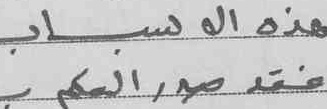 هذه الاسباب
فقد صدر الحكم ب